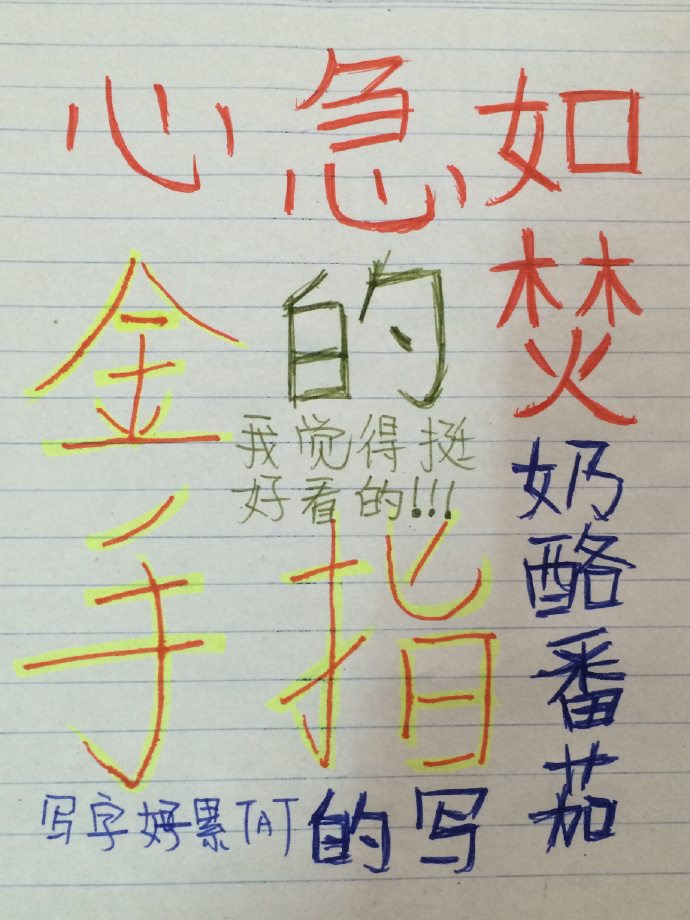 心急如焚
的
金手指
我觉得挺
好看的!!!
奶酪番茄
的写
写字好累TAT